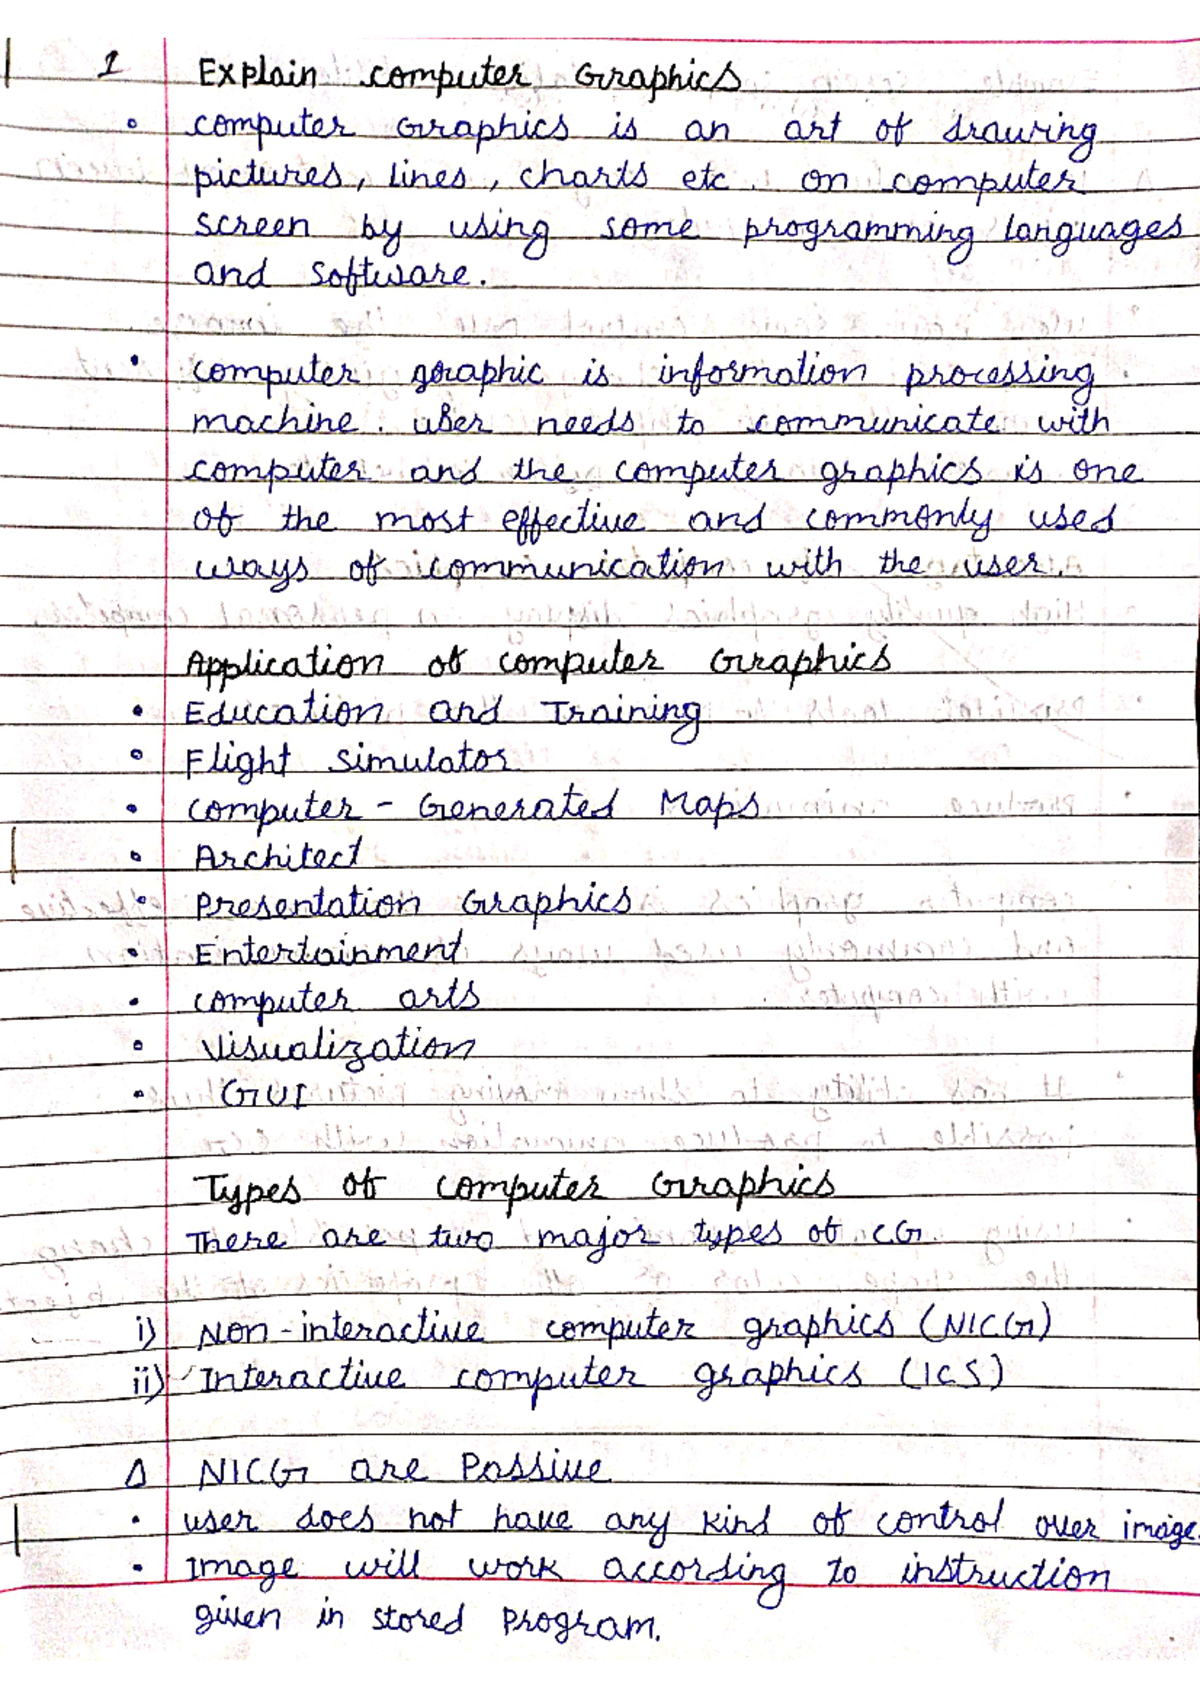 1 Explain computer Graphics
• computer Graphics is an art of drawing
pictures, lines, charts etc. on computer
screen by using some programming languages
and software.
• computer graphic is information processing
machine. user needs to communicate with
computer and the computer graphics is one
of the most effective and commonly used
ways of communication with the user.
Application of computer Graphics
• Education and Training
• Flight simulator
• computer - Generated Maps
• Architect
• Presentation Graphics
• Entertainment
• computer arts
• Visualization
• GUI
Types of computer Graphics
There are two major types of CG.
i) Non-interactive computer graphics (NICG)
ii) Interactive computer graphics (ICS)
Δ NICG are Passive
• user does not have any kind of control over image.
• Image will work according to instruction
given in stored program.